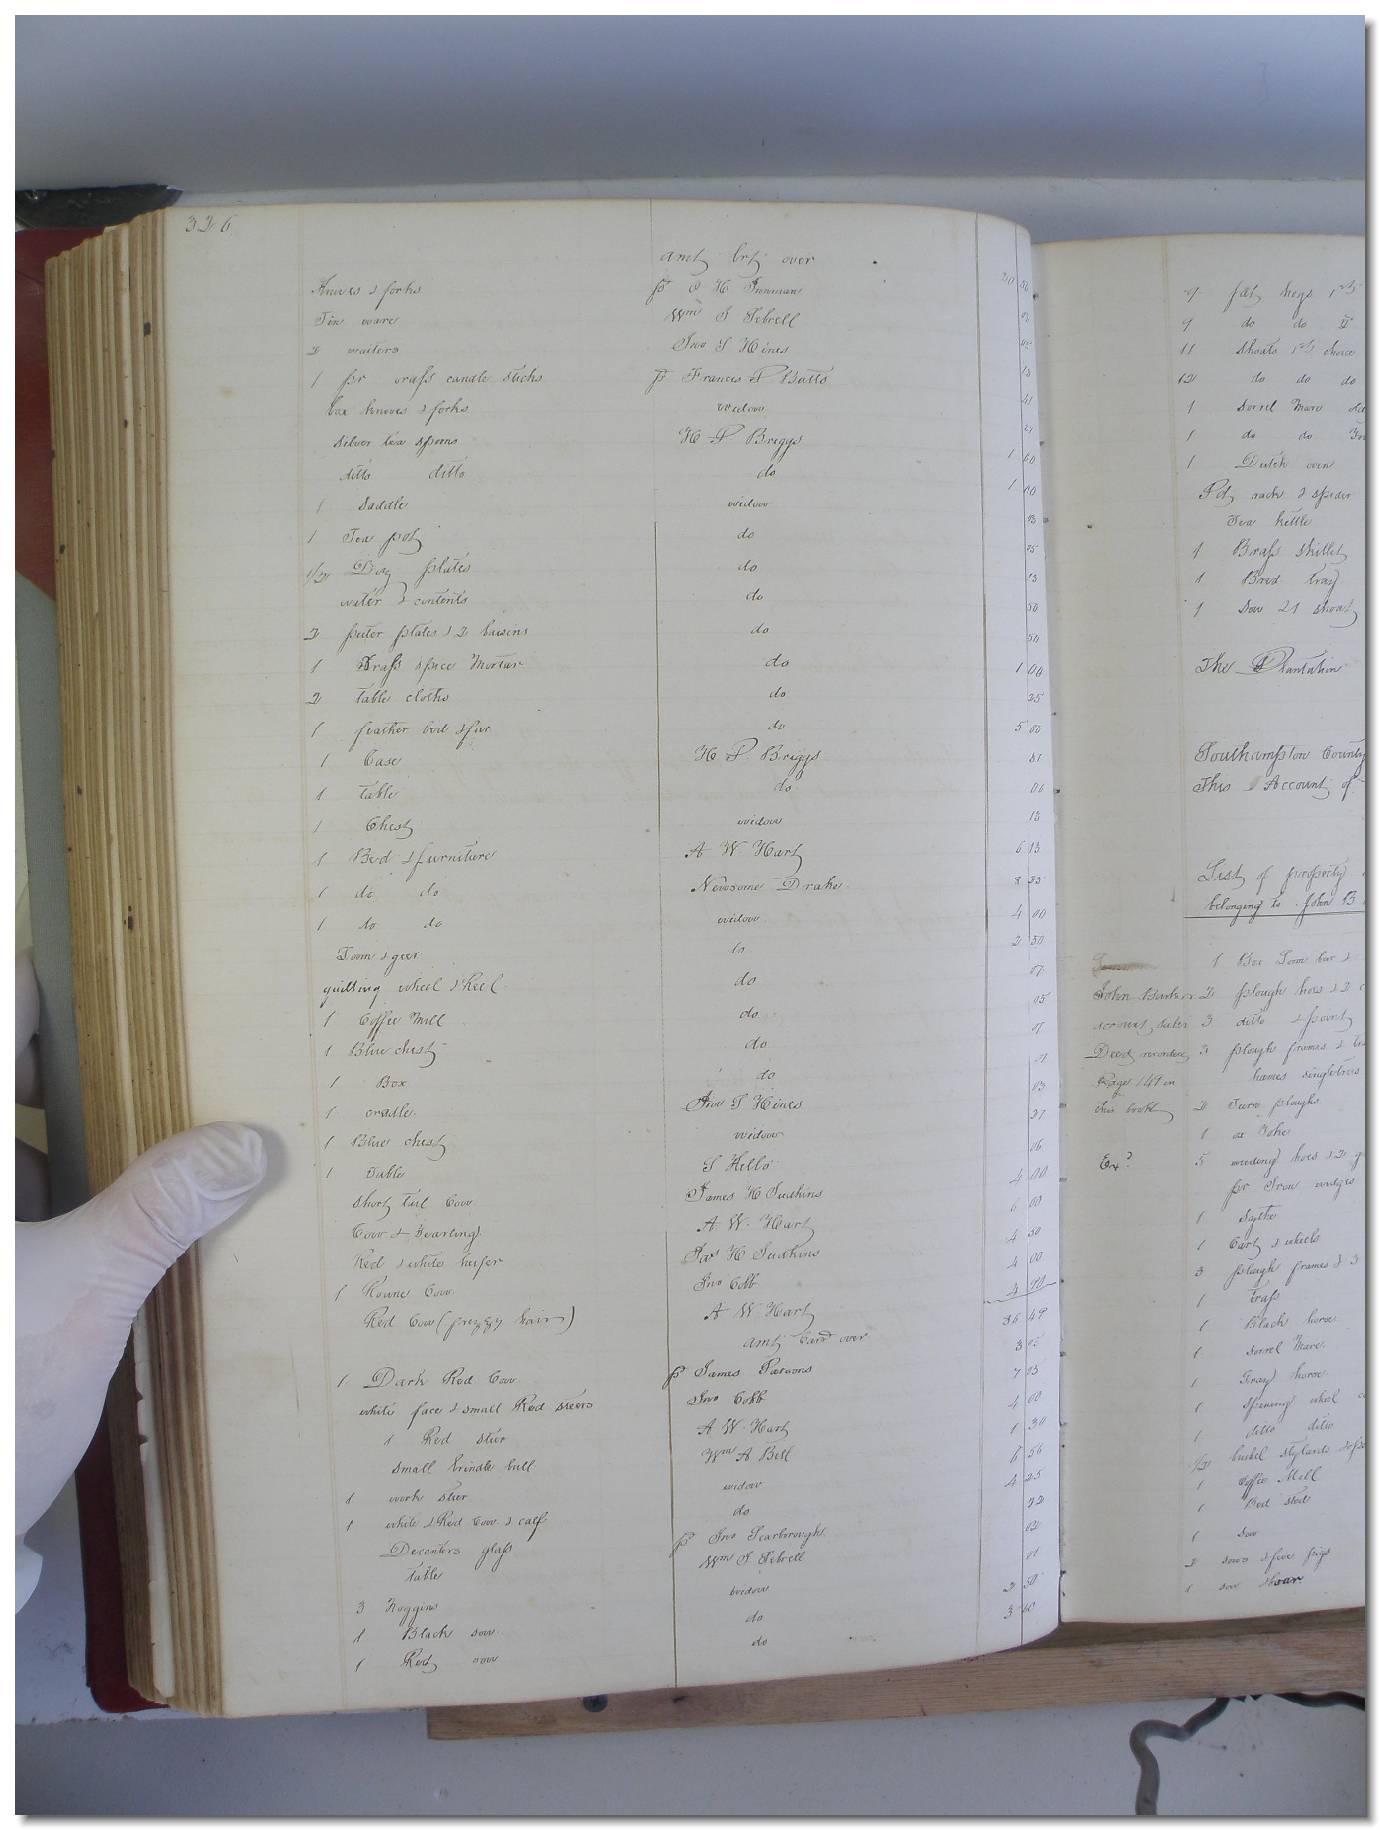 326
amt brt over 20 50
Knives & forks P H
Tin ware Wm J Sebrell
2 waiters Jno T Hines
1 pr brass candle sticks P Frances P Batts
box knives & forks widow 41
silver tea spoons H P Briggs
ditto ditto do 1 60
1 Saddle widow 1 00
1 Tea pot do 13
1/2 Doz plates do 25
& contents do 13
2 puter plates & 2 basins do 50
1 Brass spice Mortar do 50
2 table cloths do 1 00
1 feather bed & fur do 25
1 Case H P. Briggs 5 00
1 table do 81
1 Chest widow 06
1 Bed & furniture A W Hart 13
1 do do Newsome Drake 6 13
1 do do widow 8 25
Loom & geer 4 00
quilling wheel & Reel do 2 50
1 Coffee Mill do
1 Blue chest do 05
1 Box do
1 cradle Jno T Hines
1 Blue chest widow 03
1 Table 27
short tail Cow James H Judkins 06
Cow & Yearling A. W. Hart 4 00
Red & white heifer Jas H Judkins 6 00
1 Roune Cow Jno Cobb 4 50
Red Cow (frizzy hair) A W Hart 4 00
amt Card over 36 49
1 Dark Red Cow P James Parsons
white face & small Red steers Jno Cobb
1 Red stier A W. Hart 4 00
small brindle bull Wm A Bell 1 30
1 work stier widow 6 56
1 white & Red Cow & calf do 4 25
Decenters glass P Jno Scarborough
table Wm J Sebrell 02
3 Noggins widow 01
1 Black sow do 2 50
1 Red cow do 3 60
9 fat hogs 1st
9 do do 2
11 Shoats 1st choice
12 do do do
1 Sorrel Mare
1 do do
1 Dutch oven
Pot rack & spider
Tea kettle
1 Brass Skillet
1 Bred tray
1 Sow 21 shoat
The Plantation
Southampton County
This Account of
List of property
belonging to John B
1 Box
John Barker 2 plough hoes & 2
account sales 3 ditto & point
Deed recorded 3 plough frames &
Page 149 in hames singletrees
this book 2 Turn ploughs
1 ox Yoke
Ex? 5 weeding hoes & 2
pr Iron wedges
1 Sythe
1 Cart & wheels
3 plough frames & 3
1
1 Black horse
1 sorrel Mare
1 Gray horse
1 spining wheel
1 ditto ditto
1/2 bushel
1 Coffee Mill
1 Bed sted
1 sow
2 sows & five pigs
1 sow